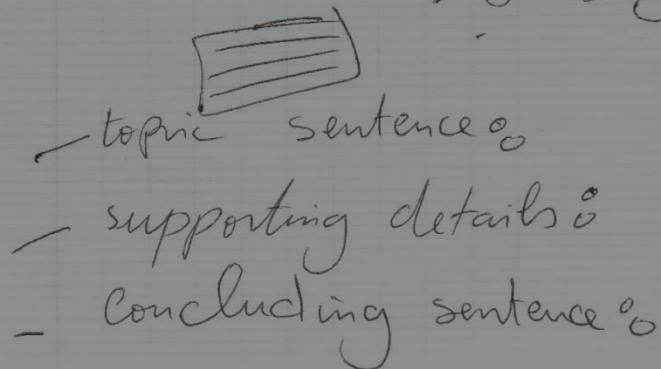 - topic sentence:
- supporting details:
- concluding sentence: